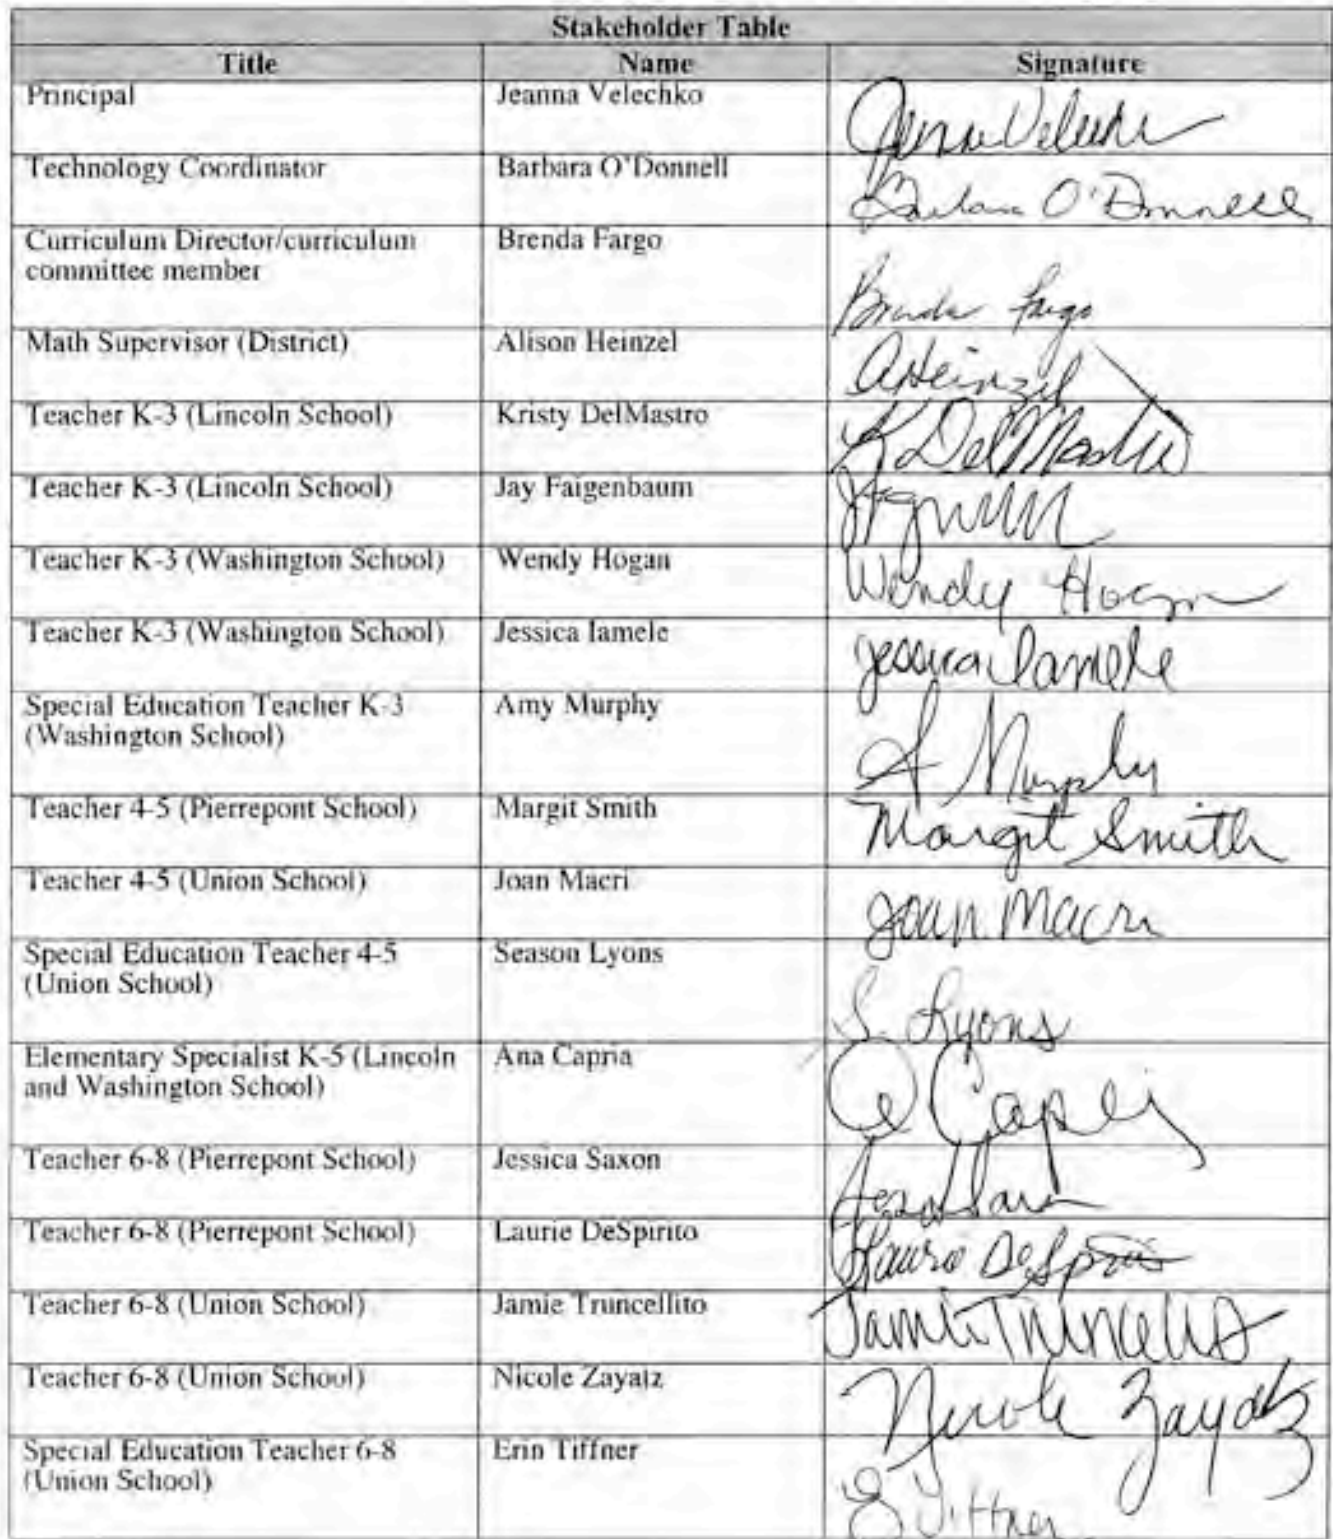 Stakeholder Table
Title Name Signature
Principal Jeanna Velechko
Technology Coordinator Barbara O'Donnell Barbara O'Donnell
Curriculum Director/curriculum Brenda Fargo
committee member
Brenda Fargo
Math Supervisor (District) Alison Heinzel AHeinzel
Teacher K-3 (Lincoln School) Kristy DelMastro K DelMastro
Teacher K-3 (Lincoln School) Jay Faigenbaum
Teacher K-3 (Washington School) Wendy Hogan Wendy Hogan
Teacher K-3 (Washington School) Jessica Iamele Jessica Iamele
Special Education Teacher K-3 Amy Murphy
(Washington School)
A Murphy
Teacher 4-5 (Pierrepont School) Margit Smith Margit Smith
Teacher 4-5 (Union School) Joan Macri Joan Macri
Special Education Teacher 4-5 Season Lyons
(Union School)
S. Lyons
Elementary Specialist K-5 (Lincoln Ana Capria
and Washington School)
Teacher 6-8 (Pierrepont School) Jessica Saxon
Teacher 6-8 (Pierrepont School) Laurie DeSpirito
Teacher 6-8 (Union School) Jamie Truncellito
Teacher 6-8 (Union School) Nicole Zayatz Nicole Zayatz
Special Education Teacher 6-8 Erin Tiffner
(Union School)
E Tiffner